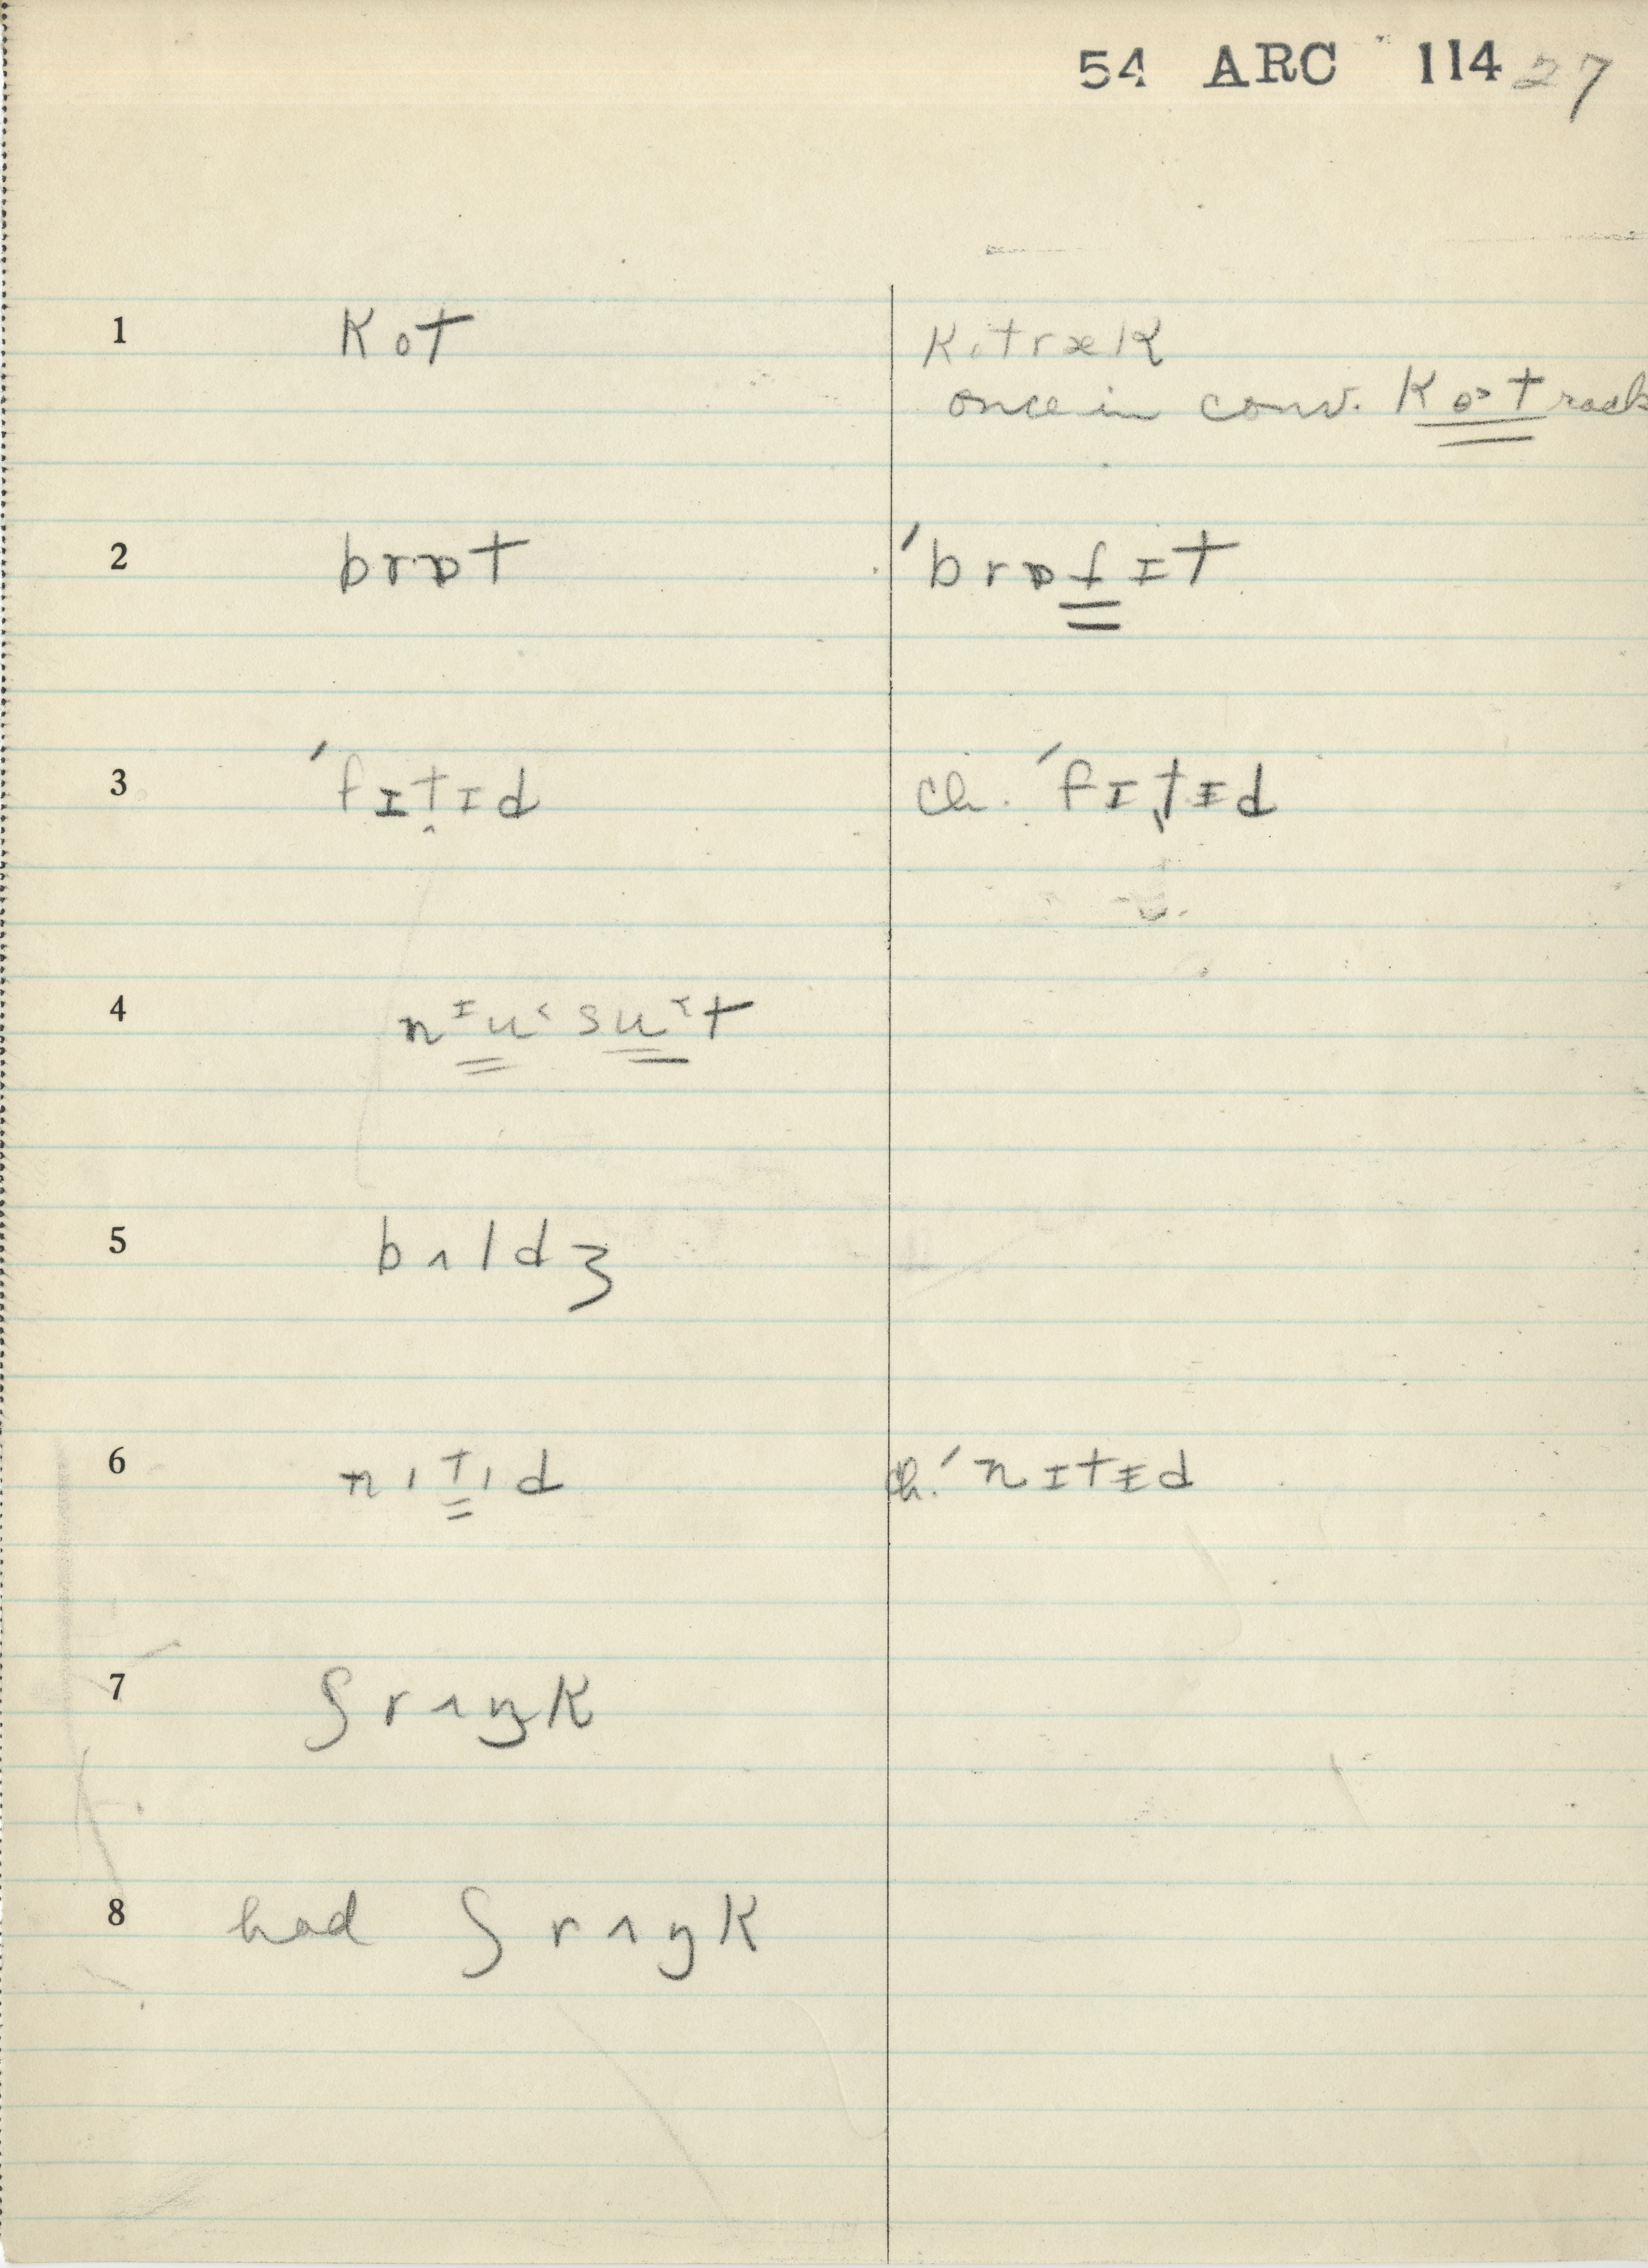 54 ARC 114 27
1 kot kɪtræk
once in conv. kɒ>track
2 brɒt ˈbrɒfɪt
3 ˈfɪt̬ɪd ch. ˈfɪt̬ɨd
4 nᶦu˂ su˂t
5 bʌldʒ
6 nɪtɪd ch. ˈnɪtɨd
7 ʃrʌŋk
8 had ʃrʌŋk